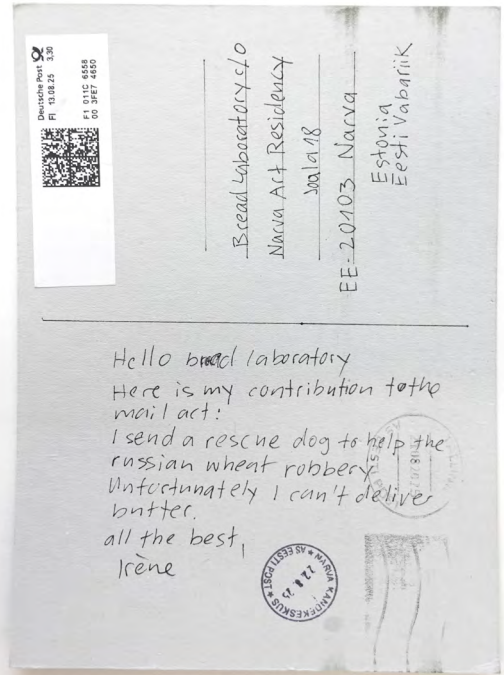 Deutsche Post
FI 13.08.25 3,30
F1 011C 6558
00 3FE7 4650
Bread Laboratory c/o
Narva Art Residency
Joala 18
EE-20103 Narva
Estonia
Eesti Vabariik
Hello bread laboratory
Here is my contribution to the
mail act:
I send a rescue dog to help the
russian wheat robbery
Unfortunately I can't deliver
butter.
all the best,
Irène
NARVA KANDEKESKUS
AS EESTI POST
22.8.25